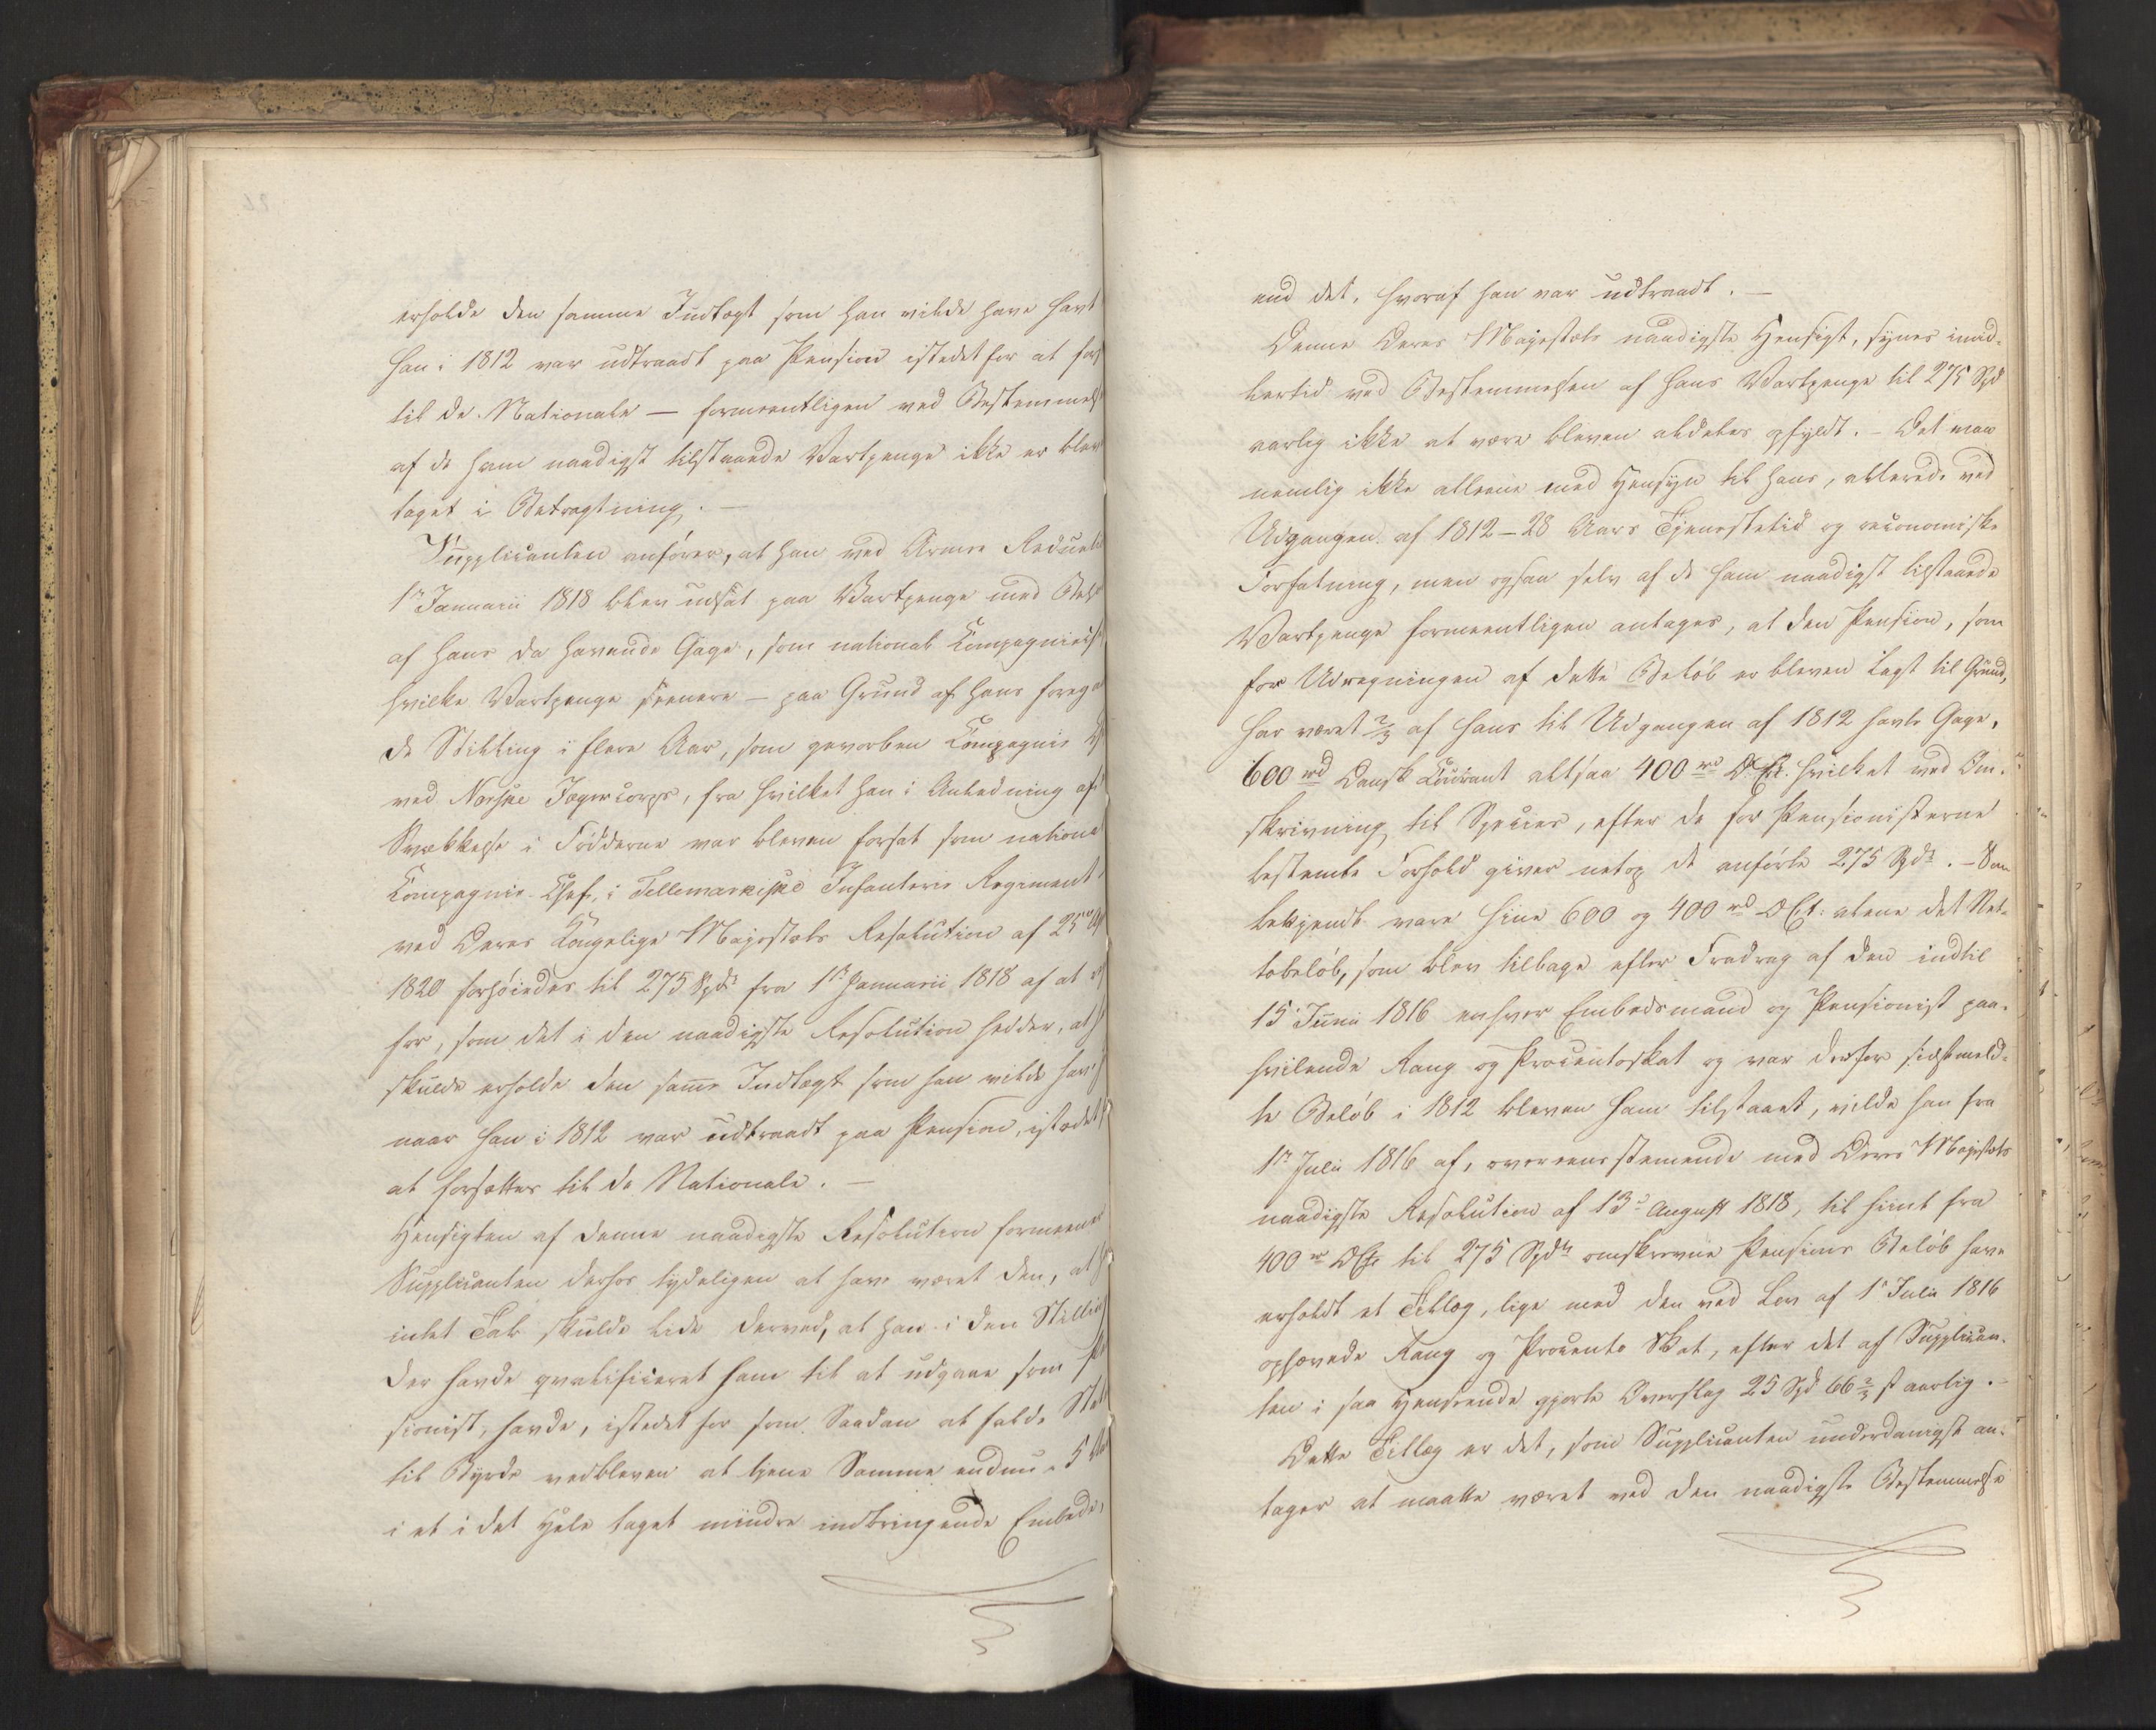 erholde den samme Indtægt som han vilde have havt
han i 1812 var udtraadt paa Pension istedetfor at fors
til de Nationale – formeentligen ved Bestemmels
af de ham naadigst tilstaaede Vartpenge ikke er blev
taget i Betragtning. –
Supplicanten anfører, at han ved Armee Reducti
1ste Januarii 1818 blev udsat paa Vartpenge med
af hans da havende Gage, som national Compagnie
hvilke Vartpenge seenere – paa Grund af hans foreg
de Stilling i flere Aar, som gevorben Compagnie
ved Norske Jægercorps, fra hvilket han i Anledning af
Svækkelse i Fødderne var bleven forsat som nationa
Compagnie Chef, i Tellemarkiske Infanterie Regiment,
ved Deres Kongelige Majestæts Resolution af 25
1820 forhøiedes til 275 Spd fra 1ste Januarii 1818 af at
før, som det i den naadigste Resolution hedder, at h
skulde erholde den samme Indtægt som han vilde hav
naar han i 1812 var udtraadt paa Pension, istedetf
at forsættes til de Nationale. –
Hensigten af denne naadigste Resolution formeener
Supplicanten derhos tydeligen at have været den, at h
intet Tab skulde lide derved, at han i den Stillin
der havde qvalificeret ham til at udgaae som Pen
sionist, havde, istedet for som Saadan at falde Stat
til Byrde vedbleven at tjene Samme endnu 5 Aa
i et i det Hele taget mindre indbringende Embede,
end det, hvoraf han var udtraadt. –
Denne Deres Majestæts naadigste Hensigt, synes imid-
lertid ved Bestemmelsen af hans Vartpenge til 275 Spd
aarlig ikke at være bleven aldeles opfyldt. – Det maa
nemlig ikke alleene med Hensyn til hans, allerede ved
Udgangen af 1812 – 28 Aars Tjenestetid og oeconomiske
Forfatning, men ogsaa selv af de ham naadigst tilstaaede
Vartpenge formeentligen antages, at den Pension, som
for Udregningen af dette Beløb er bleven lagt til Grund,
har været 2/3 af hans til Udgangen af 1812 havte Gage,
600 rd Dansk Courant altsaa 400 rd D Ct. hvilket ved Om-
skrivning til Species, efter de for Pensionisterne
bestemte Forhold giver netop de anførte 275 Spd. – Som
bekjendt vare hine 600 og 400 rd D Ct. alene det Net-
tobeløb, som blev tilbage efter Fradrag af den indtil
15 Junii 1816 enhver Embedsmand og Pensionist paa-
hvilende Rang og Procentoskat og var derfor sidstmeld-
te Beløb i 1812 bleven ham tilstaaet, vilde han fra
1ste Julii 1816 af, overeensstemmende med Deres Majestæts
naadigste Resolution af 13de August 1818, til hiint fra
400 rd D Ct. til 275 Spd omskrevne Pensions Beløb have
erholdt et Tillæg, lige med den ved Lov af 1 Julii 1816
ophævede Rang og Procento Skat, efter det af Supplican-
ten i saa Henseende gjorte Overslag 25 Spd 66 2/3 s aarlig. –
Dette Tillæg er det, som Supplicanten underdanigst an-
tager at maatte været ved den naadigste Bestemmelse